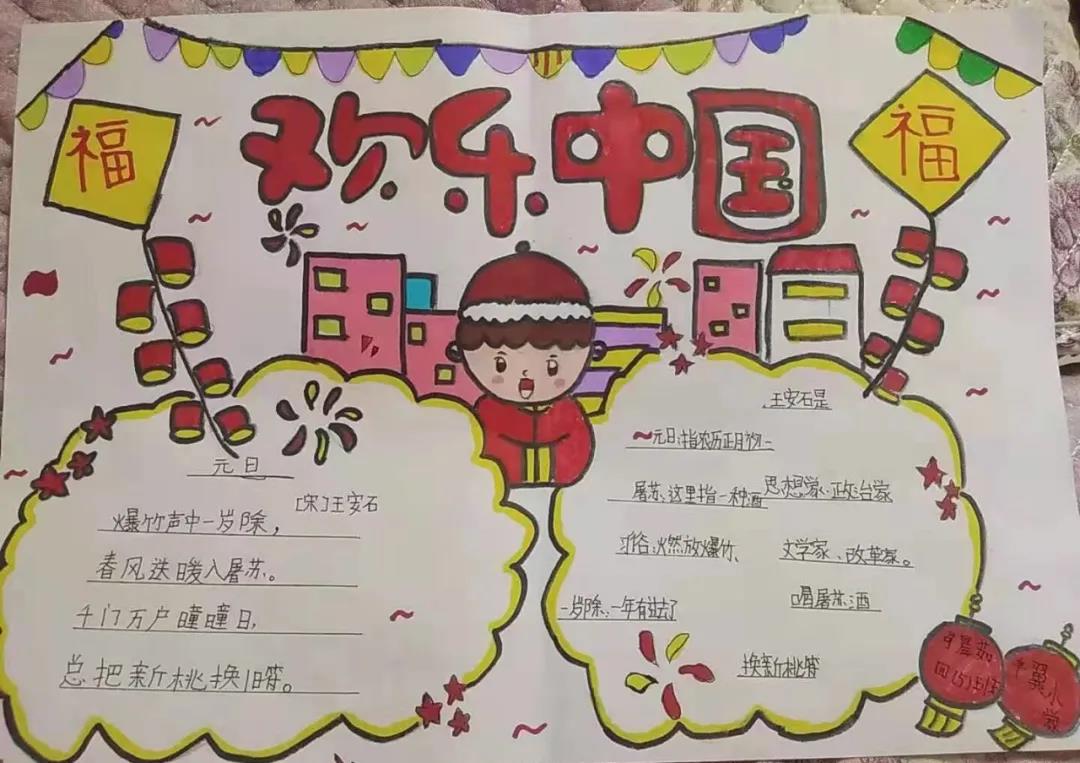 欢乐中国
福
福
元日
[宋]王安石
爆竹声中一岁除，
春风送暖入屠苏。
千门万户曈曈日，
总把新桃换旧符。
王安石是
元日：指农历正月初一
屠苏、这里指一种酒
思想家、政治家
习俗：燃放爆竹、
文学家、改革家。
一岁除：一年有过去了
喝屠苏酒
换新桃符
四(5)班
翼小学